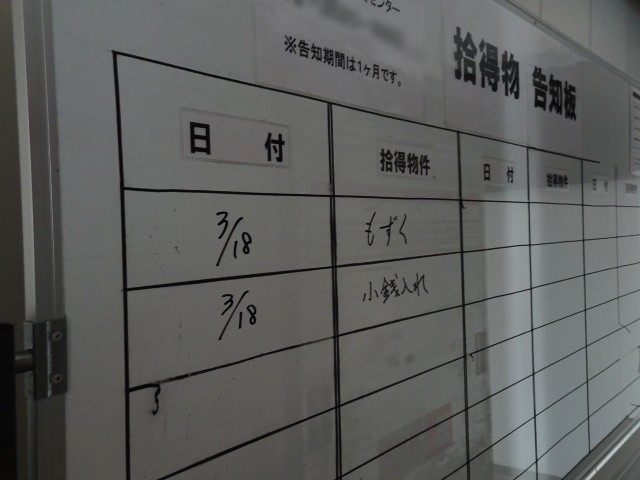 センター
※告知期間は1ヶ月です。
拾得物 告知板
日 付 拾得物件 日 付 拾得物件 日 付
3/18 もずく
3/18 小銭入れ